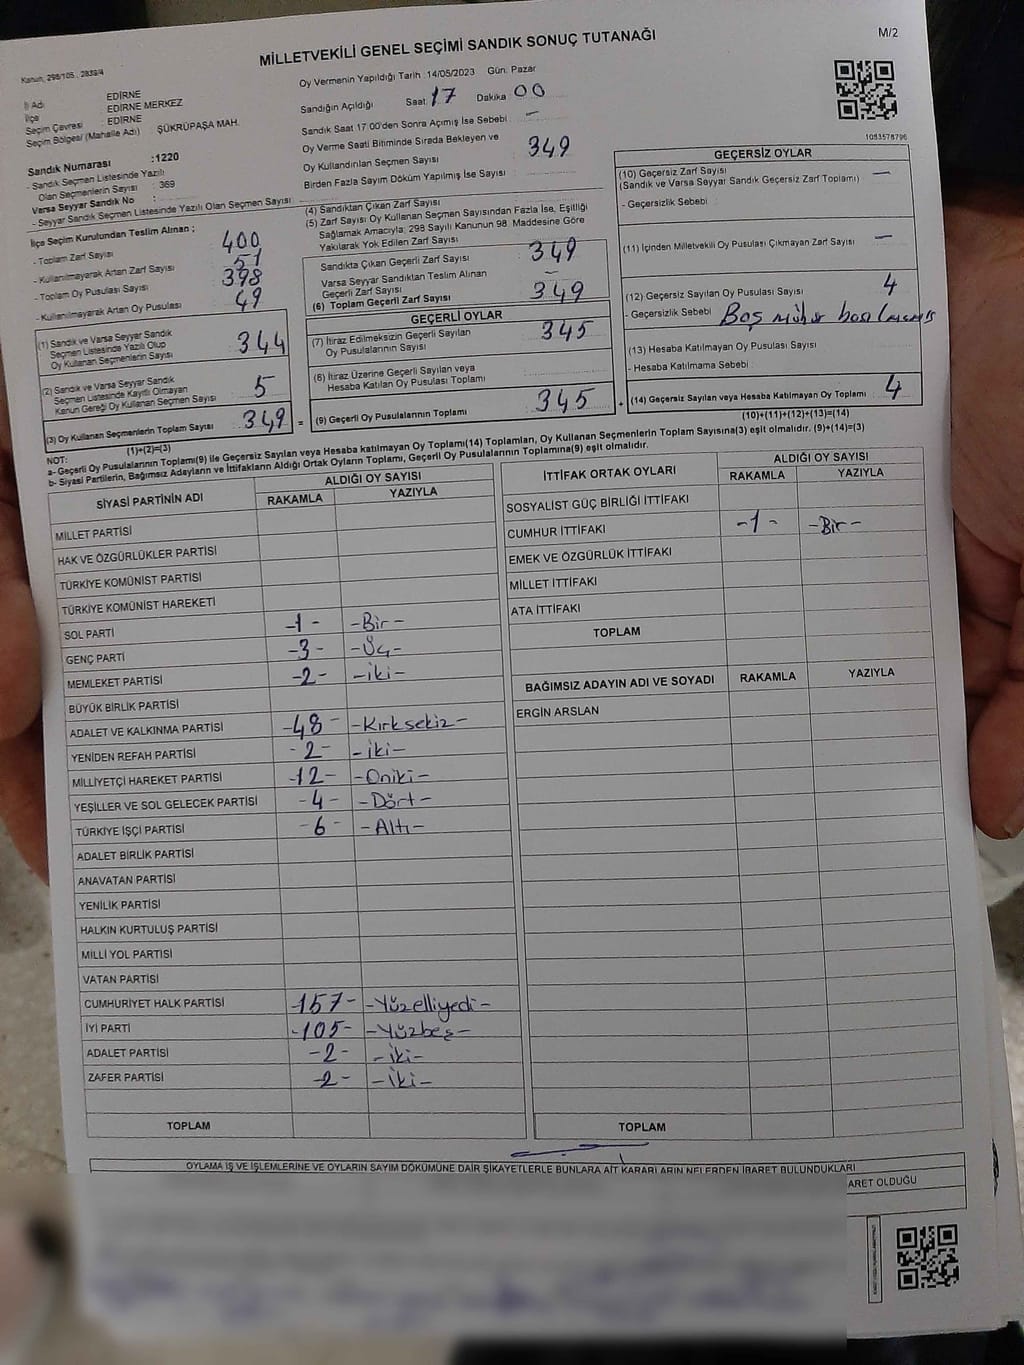 MİLLETVEKİLİ GENEL SEÇİMİ SANDIK SONUÇ TUTANAĞI
M/2
Kanun, 298/105 , 2839/4
İl Adı : EDİRNE
İlçe : EDİRNE MERKEZ
Seçim Çevresi : EDİRNE
Seçim Bölgesi (Mahalle Adı) ŞÜKRÜPAŞA MAH.
Sandık Numarası :1220
- Sandık Seçmen Listesinde Yazılı
Olan Seçmenlerin Sayısı : 369
Varsa Seyyar Sandık No :
- Seyyar Sandık Seçmen Listesinde Yazılı Olan Seçmen Sayısı
Oy Vermenin Yapıldığı Tarih : 14/05/2023 Gün: Pazar
Sandığın Açıldığı Saat 17 Dakika 00
Sandık Saat 17:00'den Sonra Açılmış İse Sebebi : —
Oy Verme Saati Bitiminde Sırada Bekleyen ve
Oy Kullandırılan Seçmen Sayısı 349
Birden Fazla Sayım Döküm Yapılmış İse Sayısı :
1053578796
İlçe Seçim Kurulundan Teslim Alınan ;
- Toplam Zarf Sayısı : 400
- Kullanılmayarak Artan Zarf Sayısı : 51
- Toplam Oy Pusulası Sayısı : 398
- Kullanılmayarak Artan Oy Pusulası : 49
(1) Sandık ve Varsa Seyyar Sandık
Seçmen Listesinde Yazılı Olup
Oy Kullanan Seçmenlerin Sayısı : 344
(2) Sandık ve Varsa Seyyar Sandık
Seçmen Listesinde Kayıtlı Olmayan
Kanun Gereği Oy Kullanan Seçmen Sayısı : 5
(3) Oy Kullanan Seçmenlerin Toplam Sayısı : 349
(1)+(2)=(3)
(4) Sandıktan Çıkan Zarf Sayısı
(5) Zarf Sayısı Oy Kullanan Seçmen Sayısından Fazla İse, Eşitliği
Sağlamak Amacıyla; 298 Sayılı Kanunun 98. Maddesine Göre
Yakılarak Yok Edilen Zarf Sayısı
Sandıkta Çıkan Geçerli Zarf Sayısı : 349
Varsa Seyyar Sandıktan Teslim Alınan
Geçerli Zarf Sayısı : —
(6) Toplam Geçerli Zarf Sayısı : 349
GEÇERLİ OYLAR
(7) İtiraz Edilmeksizin Geçerli Sayılan
Oy Pusulalarının Sayısı : 345
(8) İtiraz Üzerine Geçerli Sayılan veya
Hesaba Katılan Oy Pusulası Toplamı :
= (9) Geçerli Oy Pusulalarının Toplamı : 345 +
GEÇERSİZ OYLAR
(10) Geçersiz Zarf Sayısı : —
(Sandık ve Varsa Seyyar Sandık Geçersiz Zarf Toplamı)
- Geçersizlik Sebebi :
(11) İçinden Milletvekili Oy Pusulası Çıkmayan Zarf Sayısı : —
(12) Geçersiz Sayılan Oy Pusulası Sayısı : 4
- Geçersizlik Sebebi : Boş mühür basılmamış
(13) Hesaba Katılmayan Oy Pusulası Sayısı :
- Hesaba Katılmama Sebebi :
(14) Geçersiz Sayılan veya Hesaba Katılmayan Oy Toplamı : 4
(10)+(11)+(12)+(13)=(14)
NOT:
a- Geçerli Oy Pusulalarının Toplamı(9) ile Geçersiz Sayılan veya Hesaba katılmayan Oy Toplamı(14) Toplamları, Oy Kullanan Seçmenlerin Toplam Sayısına(3) eşit olmalıdır. (9)+(14)=(3)
b- Siyasi Partilerin, Bağımsız Adayların ve İttifakların Aldığı Ortak Oyların Toplamı, Geçerli Oy Pusulalarının Toplamına(9) eşit olmalıdır.
SİYASİ PARTİNİN ADI ALDIĞI OY SAYISI
RAKAMLA YAZIYLA
MİLLET PARTİSİ
HAK VE ÖZGÜRLÜKLER PARTİSİ
TÜRKİYE KOMÜNİST PARTİSİ
TÜRKİYE KOMÜNİST HAREKETİ
SOL PARTİ -1- -Bir-
GENÇ PARTİ -3- -Üç-
MEMLEKET PARTİSİ -2- -iki-
BÜYÜK BİRLİK PARTİSİ
ADALET VE KALKINMA PARTİSİ -48- -Kırksekiz-
YENİDEN REFAH PARTİSİ -2- -iki-
MİLLİYETÇİ HAREKET PARTİSİ -12- -Oniki-
YEŞİLLER VE SOL GELECEK PARTİSİ -4- -Dört-
TÜRKİYE İŞÇİ PARTİSİ -6- -Altı-
ADALET BİRLİK PARTİSİ
ANAVATAN PARTİSİ
YENİLİK PARTİSİ
HALKIN KURTULUŞ PARTİSİ
MİLLİ YOL PARTİSİ
VATAN PARTİSİ
CUMHURİYET HALK PARTİSİ -157- -Yüzelliyedi-
İYİ PARTİ -105- -Yüzbeş-
ADALET PARTİSİ -2- -iki-
ZAFER PARTİSİ -2- -iki-
TOPLAM
İTTİFAK ORTAK OYLARI ALDIĞI OY SAYISI
RAKAMLA YAZIYLA
SOSYALİST GÜÇ BİRLİĞİ İTTİFAKI
CUMHUR İTTİFAKI -1- -Bir-
EMEK VE ÖZGÜRLÜK İTTİFAKI
MİLLET İTTİFAKI
ATA İTTİFAKI
TOPLAM
BAĞIMSIZ ADAYIN ADI VE SOYADI RAKAMLA YAZIYLA
ERGİN ARSLAN
TOPLAM
OYLAMA İŞ VE İŞLEMLERİNE VE OYLARIN SAYIM DÖKÜMÜNE DAİR ŞİKAYETLERLE BUNLARA AİT KARARLARIN NELERDEN İBARET BULUNDUKLARI
ARET OLDUĞU